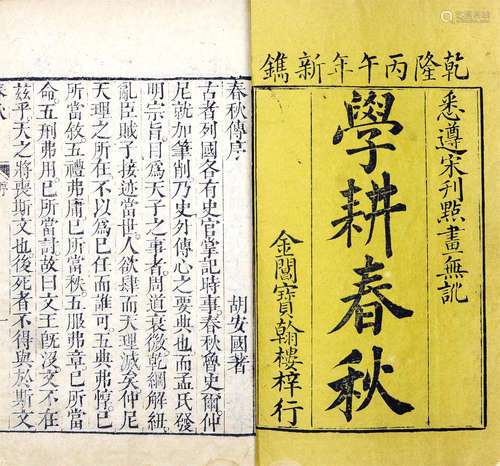 乾隆丙午年新鐫
悉遵宋刊點畫無訛
學耕春秋
金閶寶翰樓梓行
春秋傳序
胡安國著
古者列國各有史官掌記時事春秋魯史爾仲
尼就加筆削乃史外傳心之要典也而孟氏發
明宗旨目爲天子之事者周道衰微乾綱解紐
亂臣賊子接迹當世人欲肆而天理滅矣仲尼
天理之所在不以爲己任而誰可五典弗惇己
所當敘五禮弗庸己所當秩五服弗章己所當
命五刑弗用己所當討故曰文王旣沒文不在
茲乎天之將喪斯文也後死者不得與於斯文